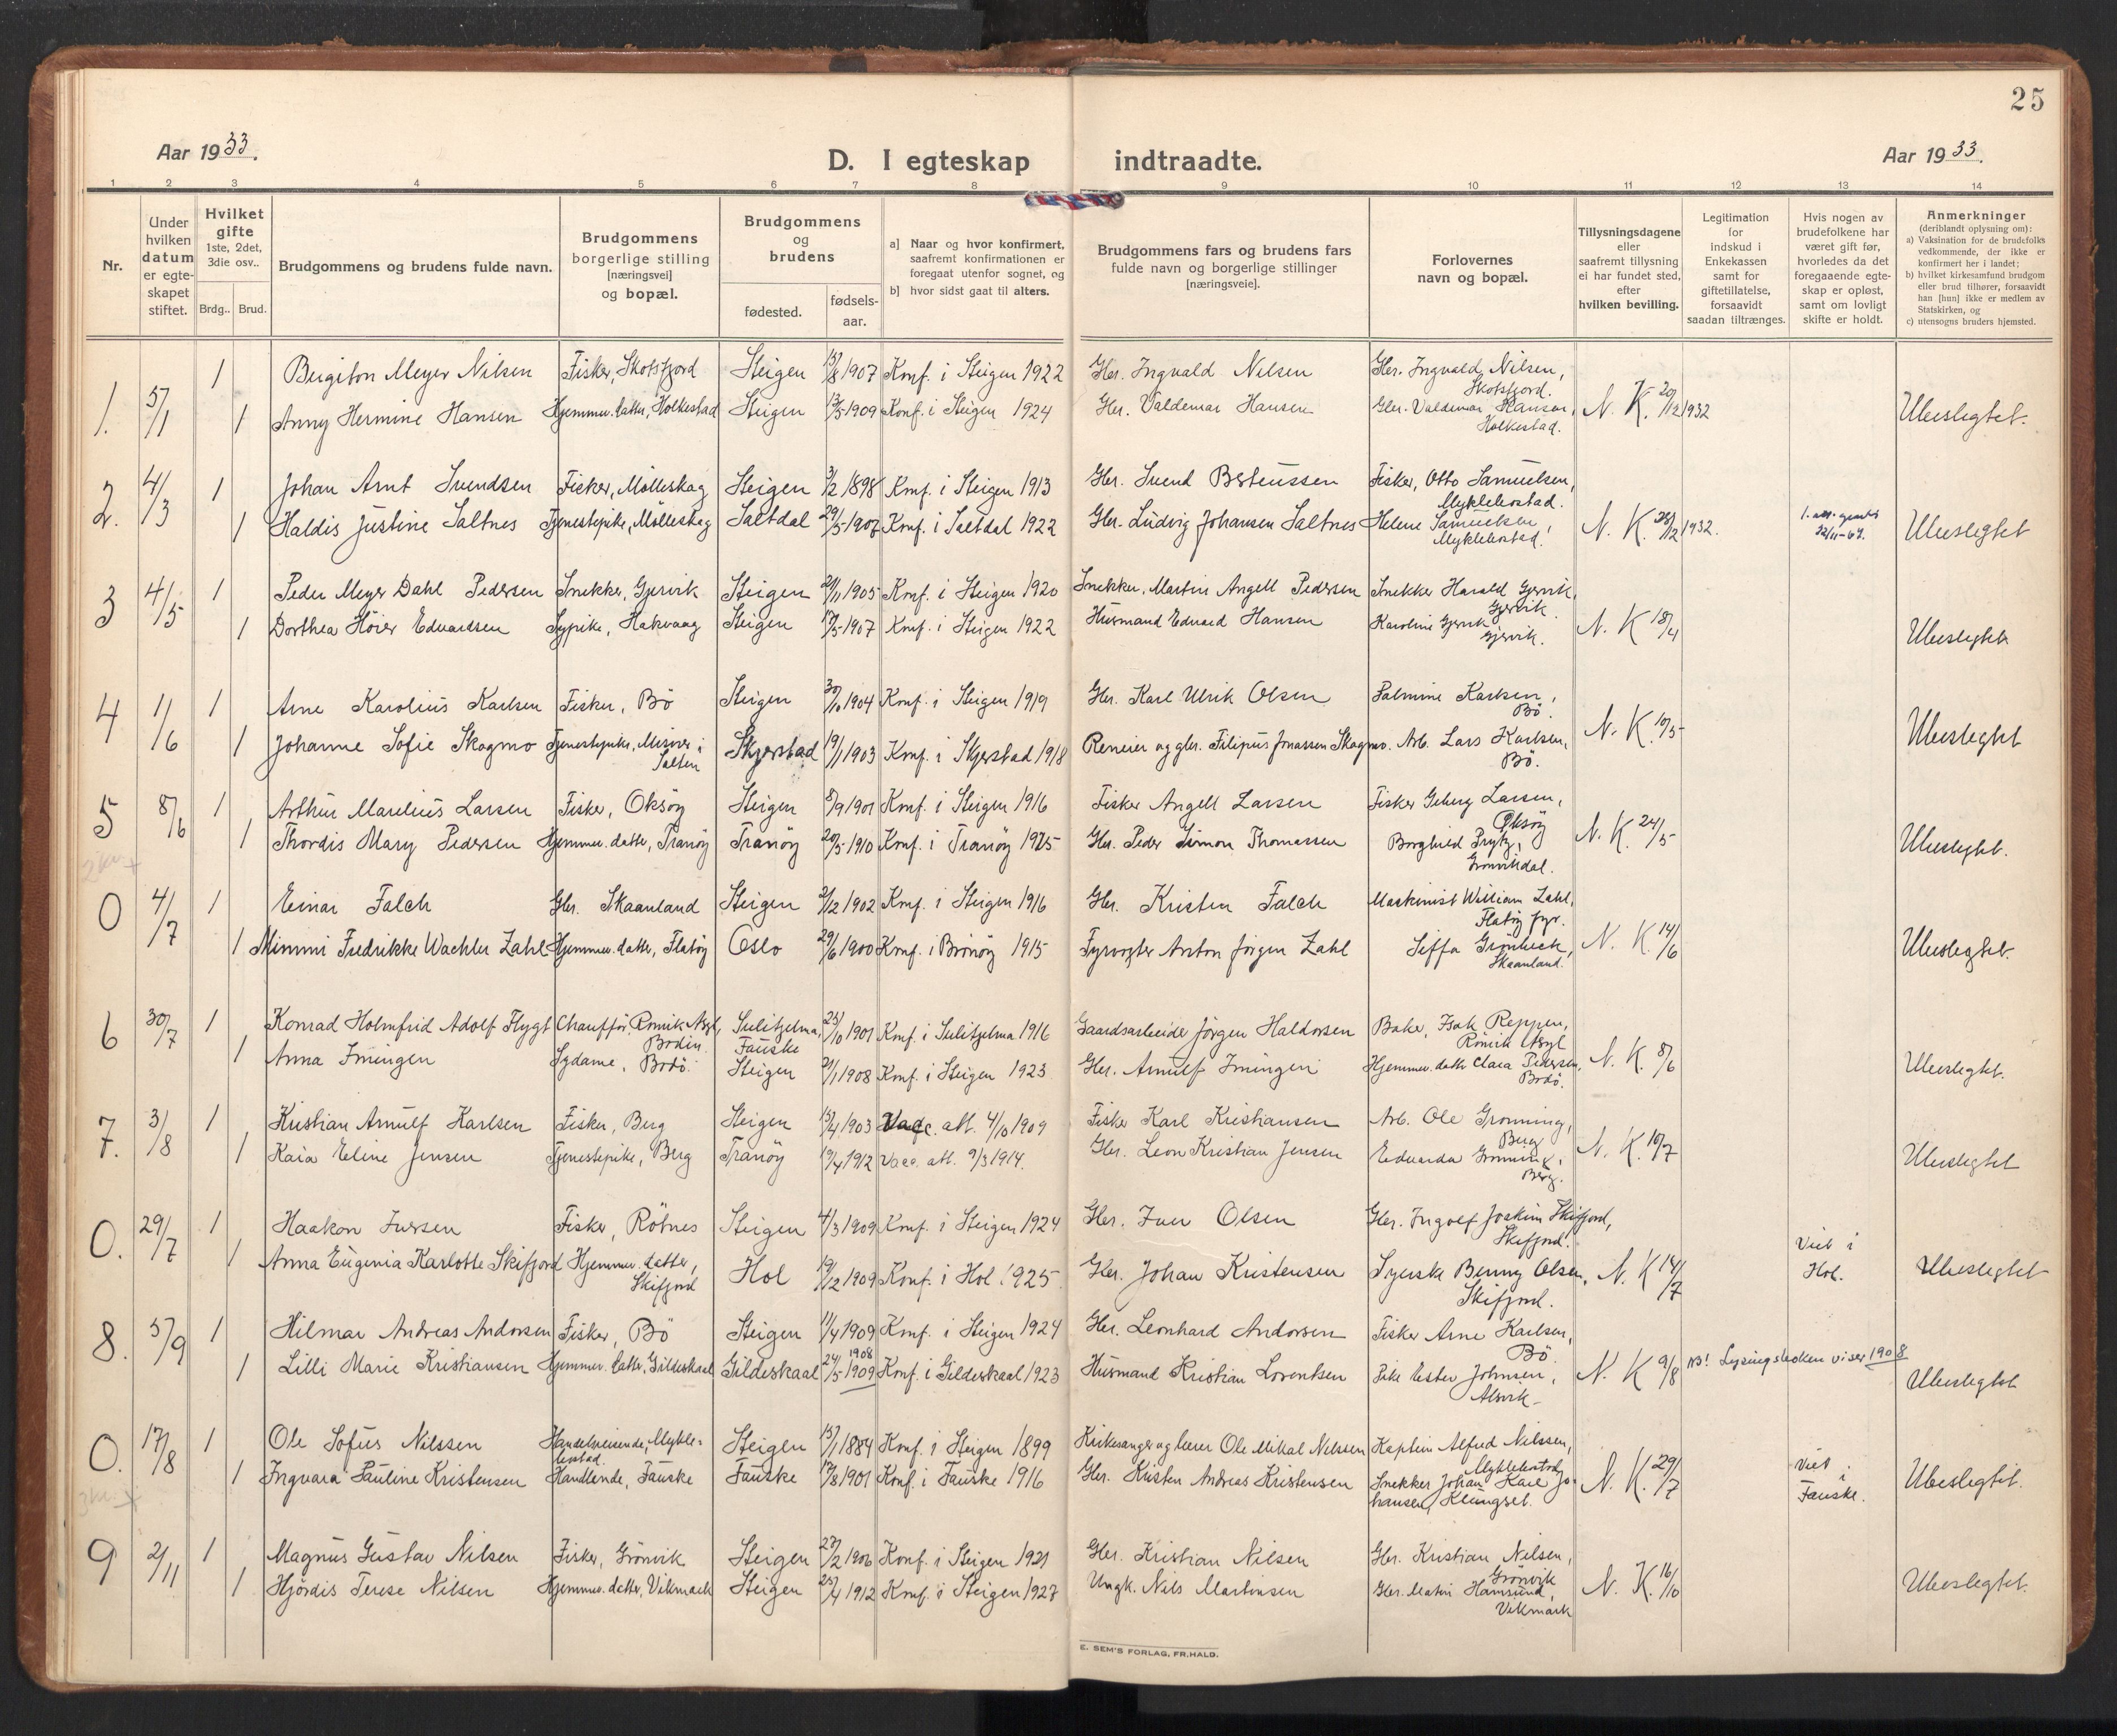 25
Aar 1933.
D. I egteskap indtraadte.
Aar 1933.
1 2 3 4 5 6 7 8 9 10 11 12 13 14
Nr.
Under hvilken datum er egteskapet stiftet.
Hvilket gifte 1ste, 2det, 3die osv..
Brdg.. Brud.
Brudgommens og brudens fulde navn.
Brudgommens borgerlige stilling [næringsvei] og bopæl.
Brudgommens og brudens
fødested.
fødsels-aar.
a] Naar og hvor konfirmert, saafremt konfirmationen er foregaat utenfor sognet, og
b] hvor sidst gaat til alters.
Brudgommens fars og brudens fars fulde navn og borgerlige stillinger [næringsveie].
Forlovernes navn og bopæl.
Tillysningsdagene eller saafremt tillysning ei har fundet sted, efter hvilken bevilling.
Legitimation for indskud i Enkekassen samt for giftetillatelse, forsaavidt saadan tiltrænges.
Hvis nogen av brudefolkene har været gift før, hvorledes da det foregaaende egteskap er opløst, samt om lovligt skifte er holdt.
Anmerkninger (deriblandt oplysning om):
a) Vaksination for de brudefolks vedkommende, der ikke er konfirmert her i landet;
b) hvilket kirkesamfund brudgom eller brud tilhører, forsaavidt han [hun] ikke er medlem av Statskirken, og
c) utensogns bruders hjemsted.
1. 5/1 1 Birgiton Meyer Nilsen Fisker, Skotsfjord Steigen 15/8 1907 Konf. i Steigen 1922 Gbr. Ingvald Nilsen Gbr. Ingvald Nilsen, Skotsfjord.
1 Anny Hermine Hansen Hjemmev. datter, Holkestad Steigen 13/5 1909 Konf. i Steigen 1924 Gbr. Valdemar Hansen Gbr. Valdemar Hansen, Holkestad. N. K. 20/12 1932 Ubeslegtet.
2. 4/3 1 Johan Arnt Svendsen Fisker, Mølleskag Steigen 3/2 1898 Konf. i Steigen 1913 Gbr. Svend Bsteussen Fisker, Otto Samuelsen, Myklebostad.
1 Haldis Justine Saltnes Tjenestepike, Mølleskag Saltdal 29/5 1907 Konf. i Saltdal 1922 Gbr. Ludvig Johansen Saltnes Helene Samuelsen, Myklebostad. N. K. 28/12 1932. 22/11-67. Ubeslegtet
3 4/5 1 Peder Meyer Dahl Pedersen Snekker, Gjervik Steigen 21/11 1905 Konf. i Steigen 1920 Snekker, Martin Angell Pedersen Snekker Harald Gjervik, Gjervik.
1 Dorthea Höier Edvardsen Sypike, Hakvaag Steigen 17/5 1907 Konf. i Steigen 1922 Husmand Edvard Hansen Karoline Gjervik Gjervik. N. K. 18/4 Ubeslegtet
4 1/6 1 Arne Karolius Karlsen Fisker, Bö Steigen 30/10 1904 Konf. i Steigen 1919 Gbr. Karl Ulrik Olsen Palmine Karlsen, Bö.
1 Johanne Sofie Skogmo Tjenestepike, Misvær i Salten Skjerstad 19/1 1903 Konf. i Skjerstad 1918 Reneier og gbr. Filipus Jonassen Skogmo. Arb. Lars Karlsen, Bö. N. K. 10/5 Ubeslegtet
5 8/6 1 Arthur Marelius Larsen Fisker, Oksöy Steigen 8/9 1901 Konf. i Steigen 1916 Fisker Angell Larsen Fisker Geberg Larsen, Oksöy
1 Thordis Mary Pedersen Hjemmev. datter, Tranöy Tranöy 20/5 1910 Konf. i Tranöy 1925 Gbr. Peder Simon Thomassen Borghild Prytz, N. K. 24/5 Ubeslegtet.
0 4/7 1 Einar Falch Gbr. Skaanland Steigen 2/12 1902 Konf. i Steigen 1916 Gbr. Kristen Falch Maskinist William Zahl, Flatöy fyr.
1 Mimmi Fredrikke Wachler Zahl Hjemmev. datter, Flatöy Oslo 29/6 1900 Konf. i Brönöy 1915 Fyrvogter Anton Jörgen Zahl Siffa Grönbeck, Skaanland. N. K. 14/6 Ubeslegtet.
6 30/7 1 Konrad Holmfrid Adolf Flygt Chauffør, Rönvik Asyl, Bodin. Sulitjelma, Fauske 25/10 1901 Konf. i Sulitjelma 1916 Gaardsarbeider Jörgen Haldorsen Baker, Isak Reppen, Rönvik Asyl
1 Anna Imingen Sydame, Bodö. Steigen 21/1 1908 Konf. i Steigen 1923 Gbr. Arnulf Imingen Hjemmev. datter Clara Pedersen, Bodö. N. K. 8/6 Ubeslegtet.
7. 3/8 1 Kristian Arnulf Karlsen Fisker, Berg Steigen 13/4 1903 Vacc. att. 4/10 1909 Fisker Karl Kristiansen Arb. Ole Grönning, Berg
1 Kaia Eline Jensen Tjenestepike, Berg Tranöy 19/4 1912 Vacc. att. 9/3 1914. Gbr. Leon Kristian Jensen Edvarda Grönning, Berg. N. K. 10/7 Ubeslegtet
0. 29/7 1 Haakon Iversen Fisker, Rötnes Steigen 4/3 1909 Konf. i Steigen 1924 Gbr. Iver Olsen Gbr. Ingolf Joakim Skifjord, Skifjord.
1 Anna Eugenia Karlotte Skifjord Hjemmev. datter, Skifjord Hol 19/12 1909 Konf. i Hol 1925 Gbr. Johan Kristensen Syerske Benny Olsen, Skifjord. N. K 14/7 Viet i Hol. Ubeslegtet
8. 5/9 1 Hilmar Andreas Andorsen Fisker, Bö Steigen 11/4 1909 Konf. i Steigen 1924 Gbr. Leonhard Andorsen Fisker Arne Karlsen, Bö.
1 Lilli Marie Kristiansen Hjemmev. datter, Gildeskaal Gildeskaal 24/5 1908 1909 Konf. i Gildeskaal 1923 Husmand Kristian Lorentsen Pike Ester Johnsen, Alsvik N. K 9/8 NB! Lysingsboken viser 1908 Ubeslegtet
0. 17/8 1 Ole Sofus Nilssen Handelsreisende, Myklebostad. Steigen 15/1 1884 Konf. i Steigen 1899 Kirkesanger og lærer Ole Mikal Nilssen Kaptein Alfred Nilssen, Myklebostad.
1 Ingvara Pauline Kristensen Handlende, Fauske Fauske 17/8 1901 Konf. i Fauske 1916 Gbr. Kristen Andreas Kristensen Snekker Johan Karl Johansen, Klungset. N. K. 29/7 Viet i Fauske. Ubeslegtet.
9 2/11 1 Magnus Gustav Nilsen Fisker, Grönvik Steigen 27/2 1906 Konf. i Steigen 1921 Gbr. Kristian Nilsen Gbr. Kristian Nilsen, Grönvik
1 Hjördis Terese Nilsen Hjemmev. datter, Vikmark Steigen 25/4 1912 Konf. i Steigen 1927 Ungk. Nils Martinsen Gbr. Martin Hamsund, Vikmark N. K. 16/10 Ubeslegtet.
E. SEM'S FORLAG, FR.HALD.